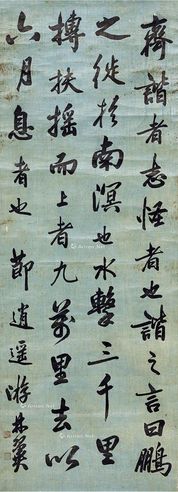 齊諧者志怪者也諧之言曰鵬
之徙於南溟也水擊三千里
摶扶搖而上者九萬里去以
六月息者也 節逍遙游